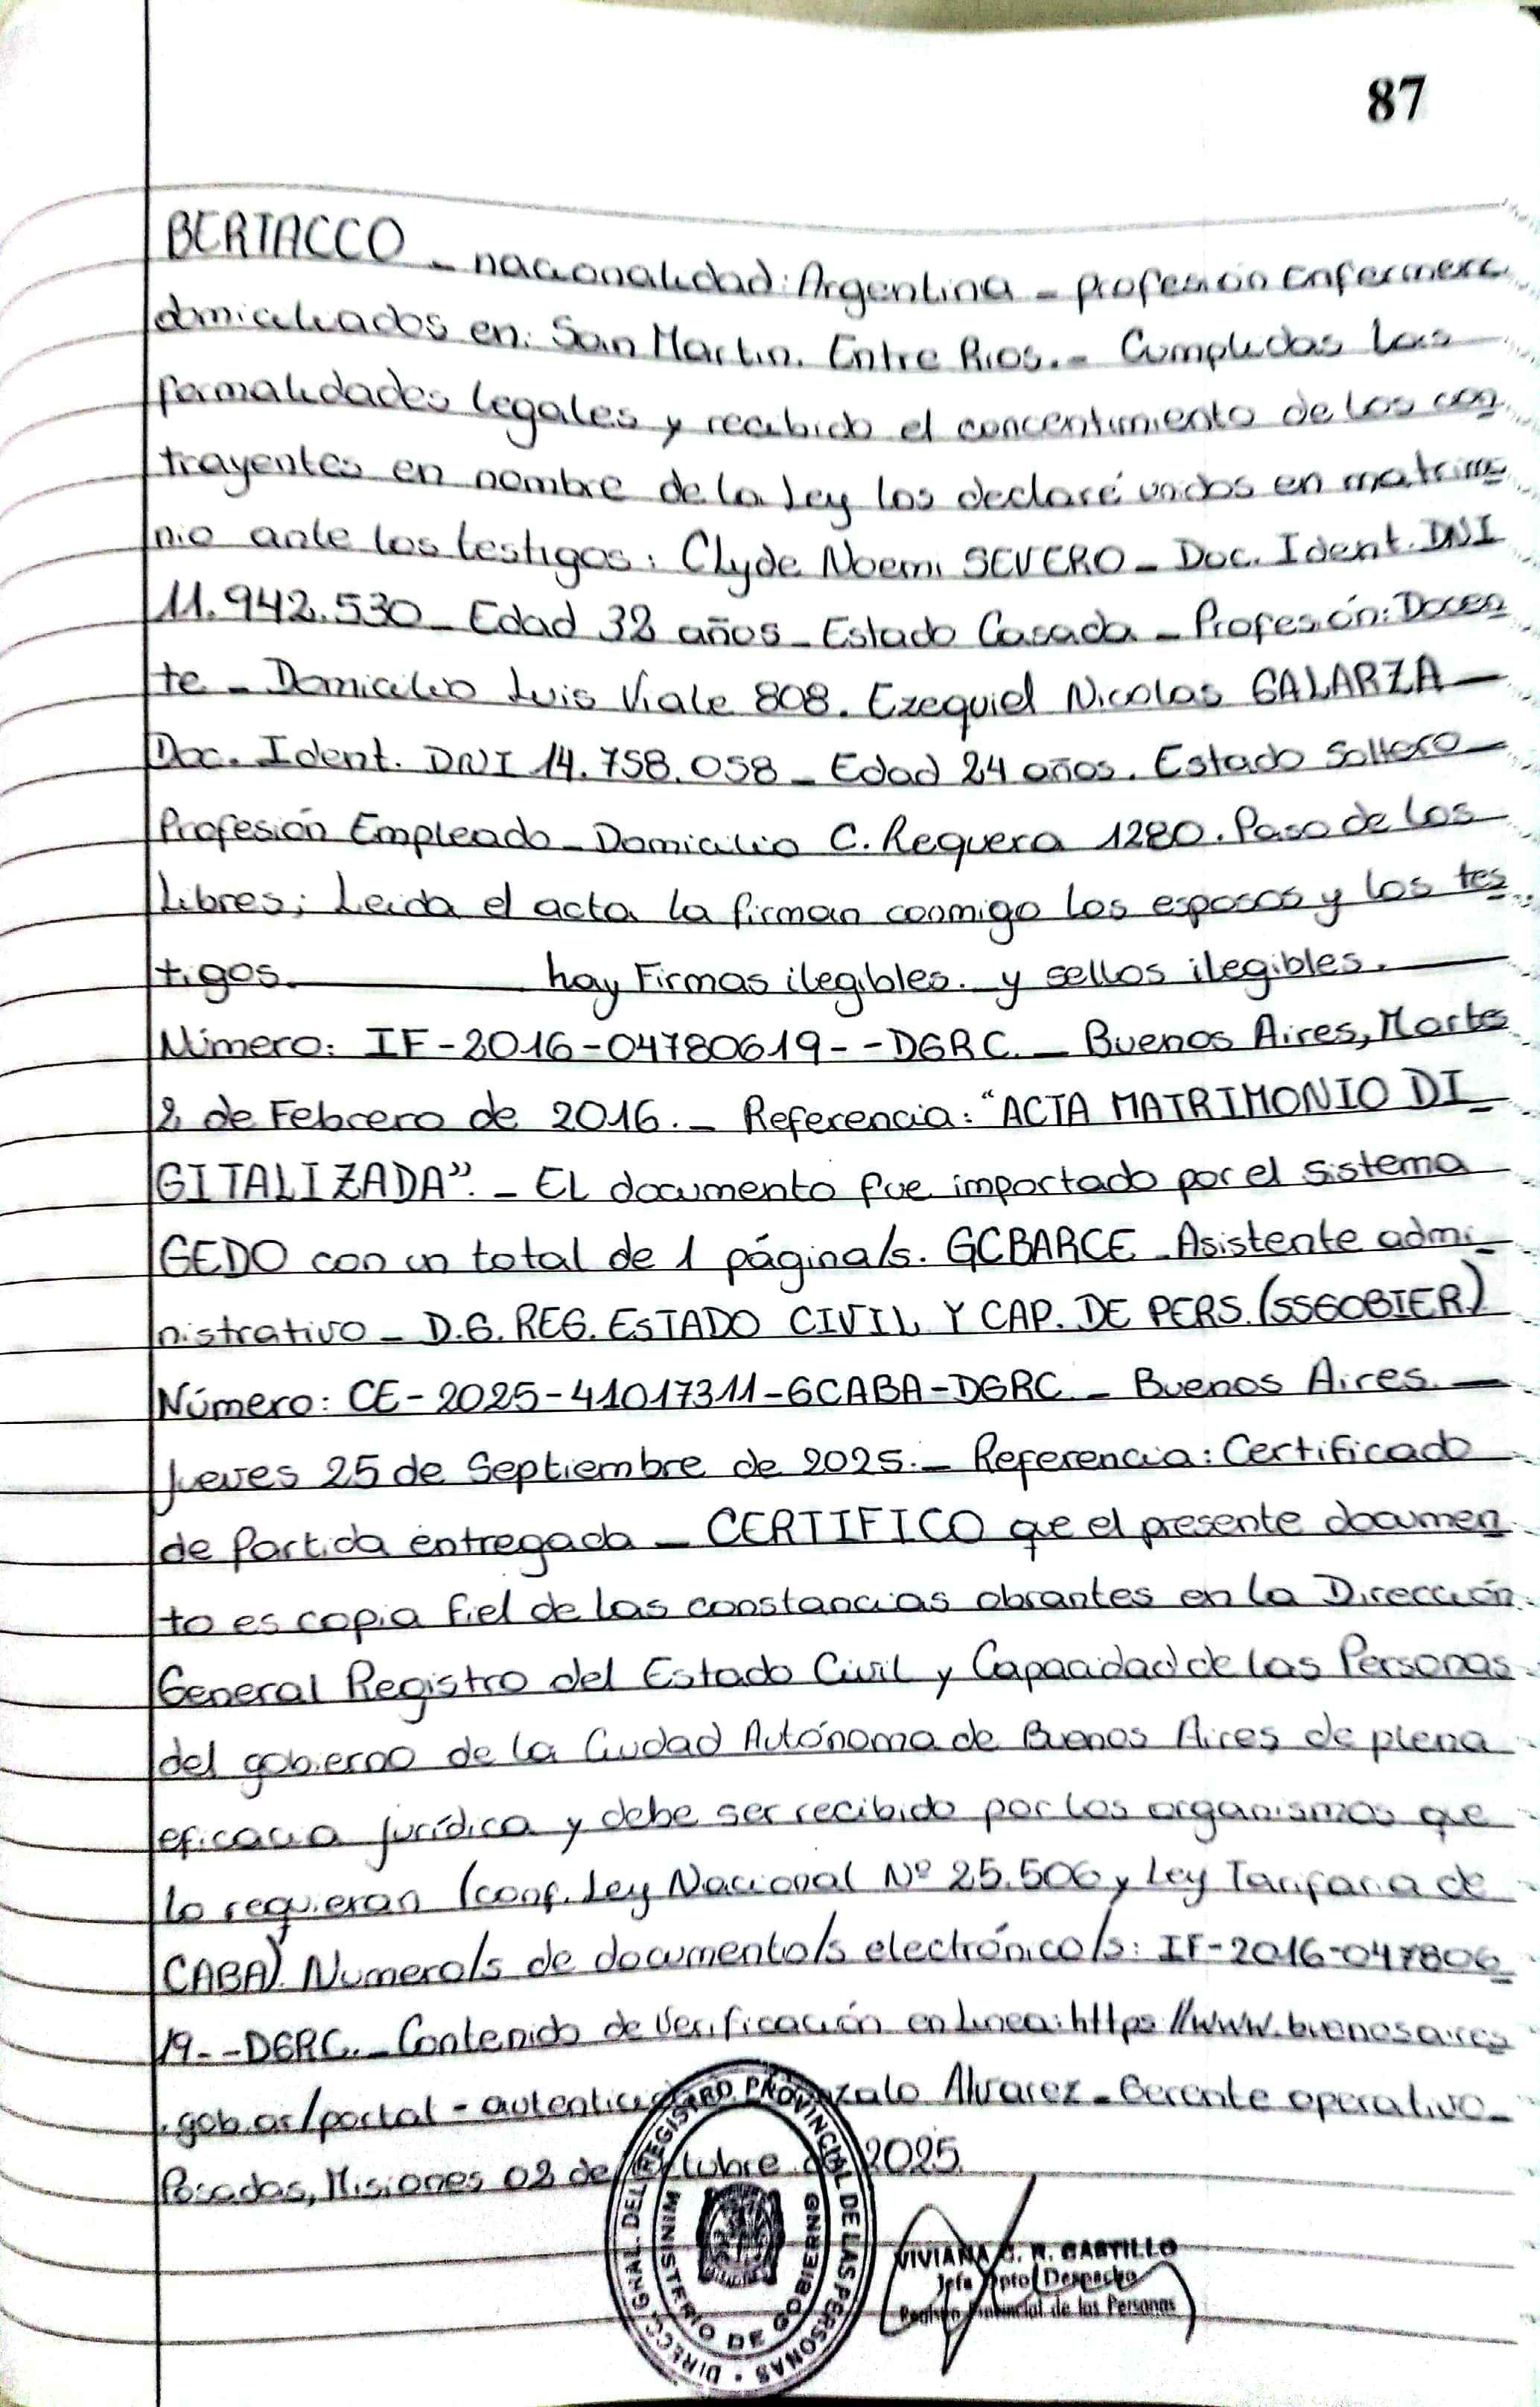 87
BERTACCO - nacionalidad: Argentina - profesión Enfermera
domiciliados en: San Martin. Entre Rios. - Cumplidas las
formalidades legales y recibido el concentimiento de los con
trayentes en nombre de la Ley los declaré unidos en matrimo
nio ante los testigos: Clyde Noemi SEVERO - Doc. Ident. DNI
11.942.530 - Edad 32 años - Estado Casada - Profesión: Docen
te - Domicilio Luis Viale 808. Ezequiel Nicolas GALARZA -
Doc. Ident. DNI 14.758.058 - Edad 24 años. Estado Soltero -
Profesión Empleado - Domicilio C. Requera 1280. Paso de Los
Libres; Leida el acta la firman conmigo los esposos y los tes
tigos. hay Firmas ilegibles. y sellos ilegibles.
Número: IF-2016-04780619--DGRC. - Buenos Aires, Martes
2 de Febrero de 2016. - Referencia: "ACTA MATRIMONIO DI
GITALIZADA". - EL documento fue importado por el sistema
GEDO con un total de 1 página/s. GCBARCE - Asistente admi
nistrativo - D.G. REG. ESTADO CIVIL Y CAP. DE PERS. (SSGOBIER)
Número: CE-2025-41017311-GCABA-DGRC - Buenos Aires. -
Jueves 25 de Septiembre de 2025. - Referencia: Certificado
de Partida entregada - CERTIFICO que el presente documen
to es copia fiel de las constancias obrantes en la Dirección
General Registro del Estado Civil y Capacidad de las Personas
del gobierno de la Ciudad Autónoma de Buenos Aires de plena
eficacia jurídica y debe ser recibido por los organismos que
lo requieran (conf. Ley Nacional Nº 25.506 y Ley Tarifaria de
CABA). Numero/s de documento/s electrónico/s: IF-2016-047806
19--DGRC. - Contenido de Verificación en linea: https://www.buenosaires
.gob.ar/portal - Alvarez - Gerente operativo -
Posadas, Misiones 02 de Octubre de 2025.
DIRECC. GNAL. DEL REGISTRO PROVINCIAL DE LAS PERSONAS
MINISTERIO DE GOBIERNO
VIVIANA C. R. CASTILLO
Jefa Dpto. Despacho
Registro Provincial de las Personas